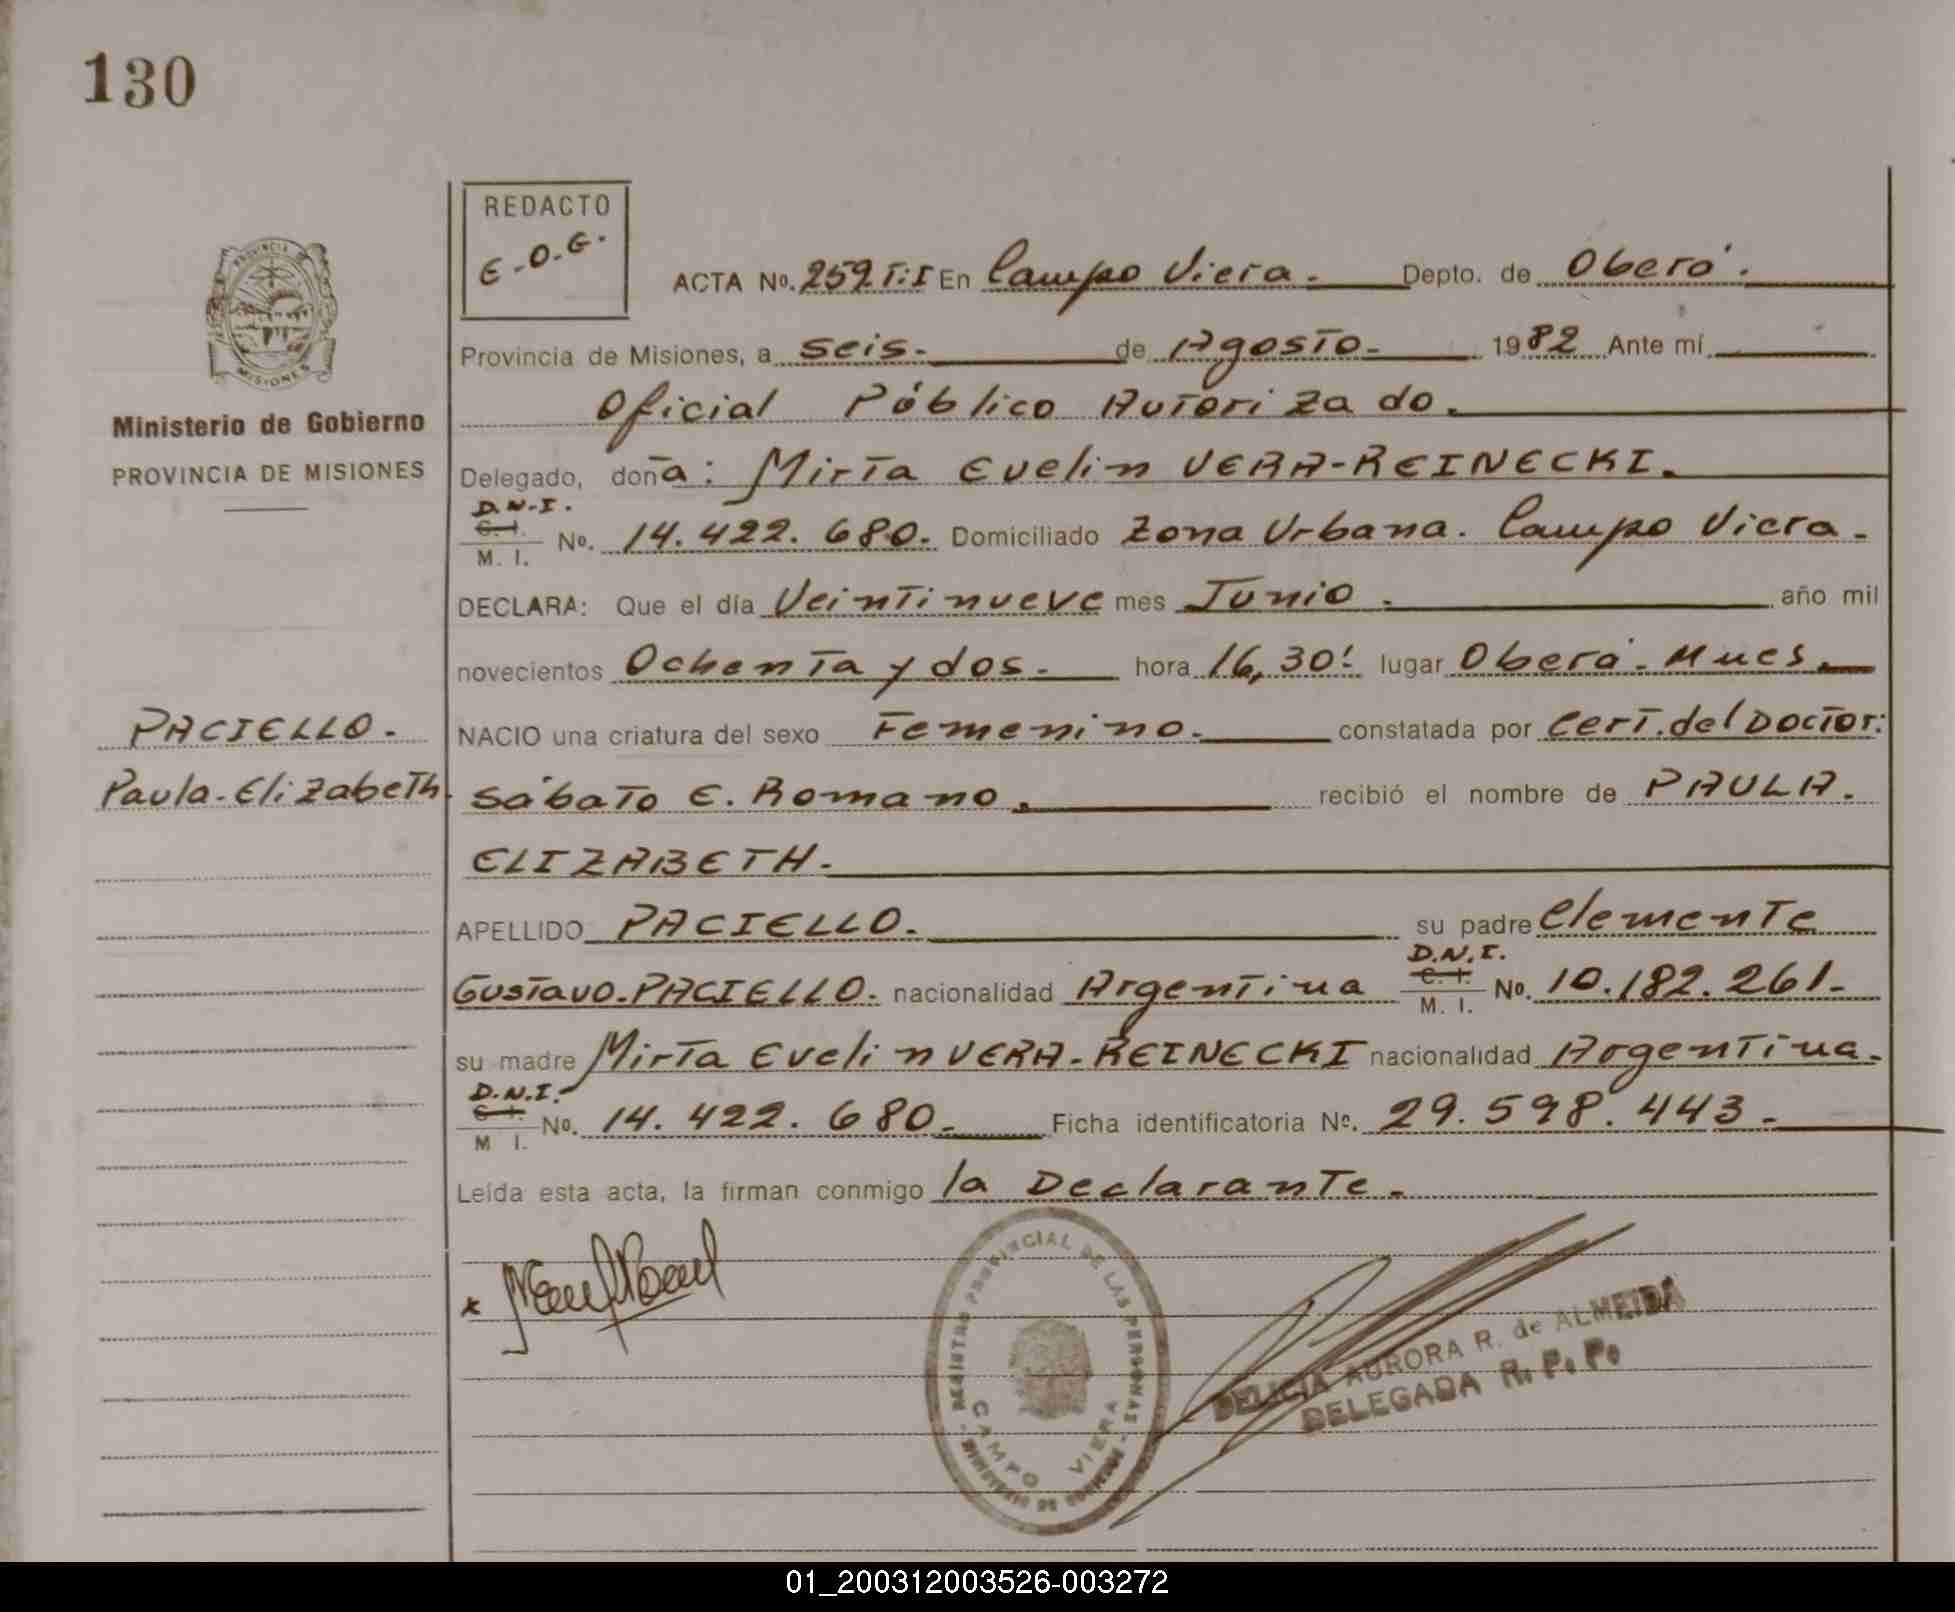 130
REDACTO
E.O.G.
ACTA No. 259 T:I En Campo Viera. Depto. de Oberá.
Provincia de Misiones, a seis. de Agosto. 1982 Ante mí
Oficial Público Autorizado.
Delegado, doña: Mirta Evelin VERA-REINECKI.
D.N.I.
C. I.
M. I. No. 14.422.680. Domiciliado Zona Urbana. Campo Viera.
DECLARA: Que el día Veintinueve mes Junio. año mil
novecientos Ochenta y dos. hora 16,30! lugar Oberá. Mnes.
NACIO una criatura del sexo Femenino. constatada por Cert. del Doctor:
Sábato E. Romano. recibió el nombre de PAULA.
ELIZABETH.
APELLIDO PACIELLO. su padre Clemente
Gustavo. PACIELLO. nacionalidad Argentina D.N.I. C. I. M. I. No. 10.182.261.
su madre Mirta Evelin VERA-REINECKI nacionalidad Argentina.
D.N.I.
C. I.
M I. No. 14.422.680. Ficha identificatoria No. 29.598.443.
Leída esta acta, la firman conmigo la Declarante.
PROVINCIA DE
MISIONES
Ministerio de Gobierno
PROVINCIA DE MISIONES
PACIELLO.
Paula-Elizabeth.
REGISTRO PROVINCIAL DE LAS PERSONAS
CAMPO VIERA
DELICIA AURORA R. de ALMEIDA
DELEGADA R. P. P.
01_200312003526-003272